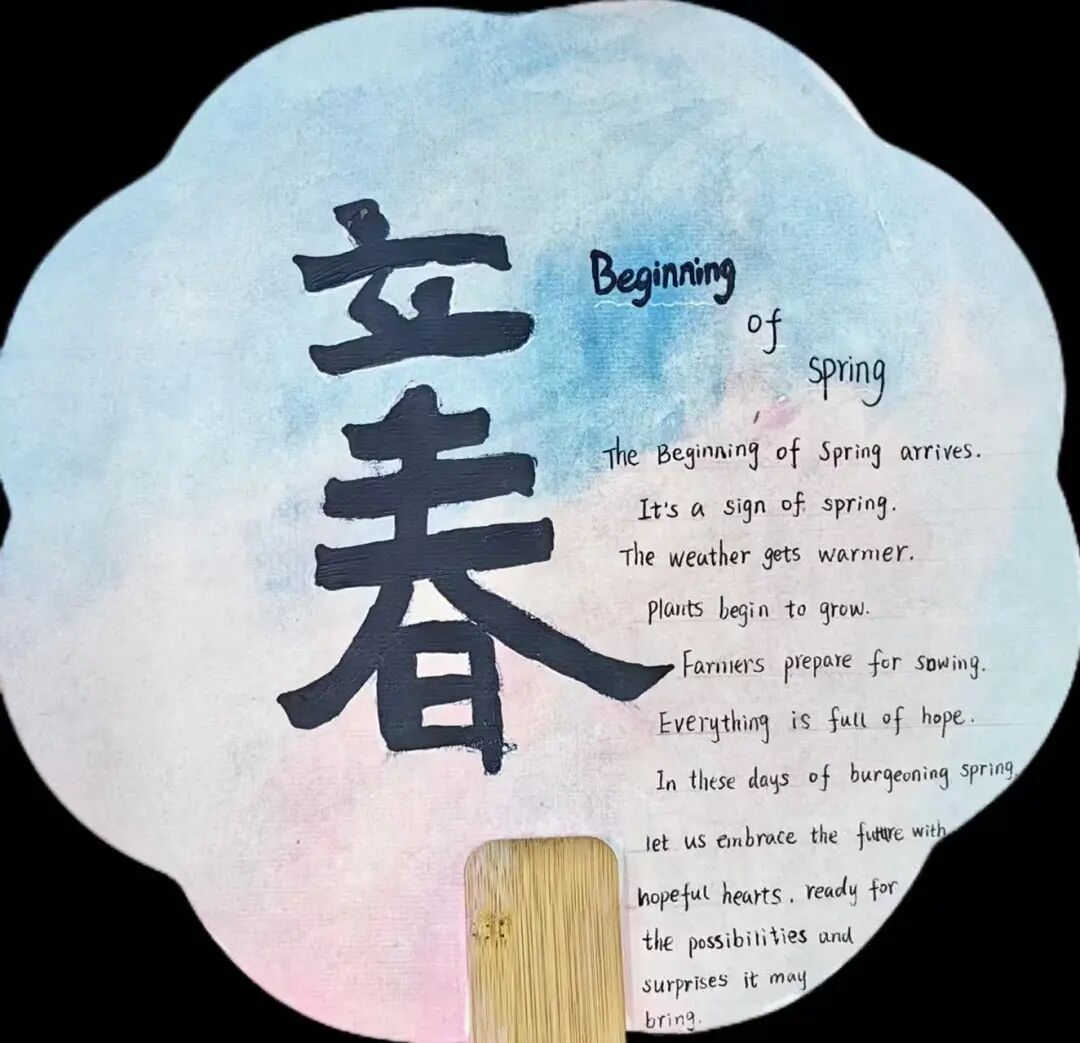 立春
Beginning
of
spring
The Beginning of Spring arrives.
It's a sign of spring.
The weather gets warmer.
plants begin to grow.
Farmers prepare for sowing.
Everything is full of hope.
In these days of burgeoning spring,
let us embrace the future with
hopeful hearts, ready for
the possibilities and
surprises it may
bring.